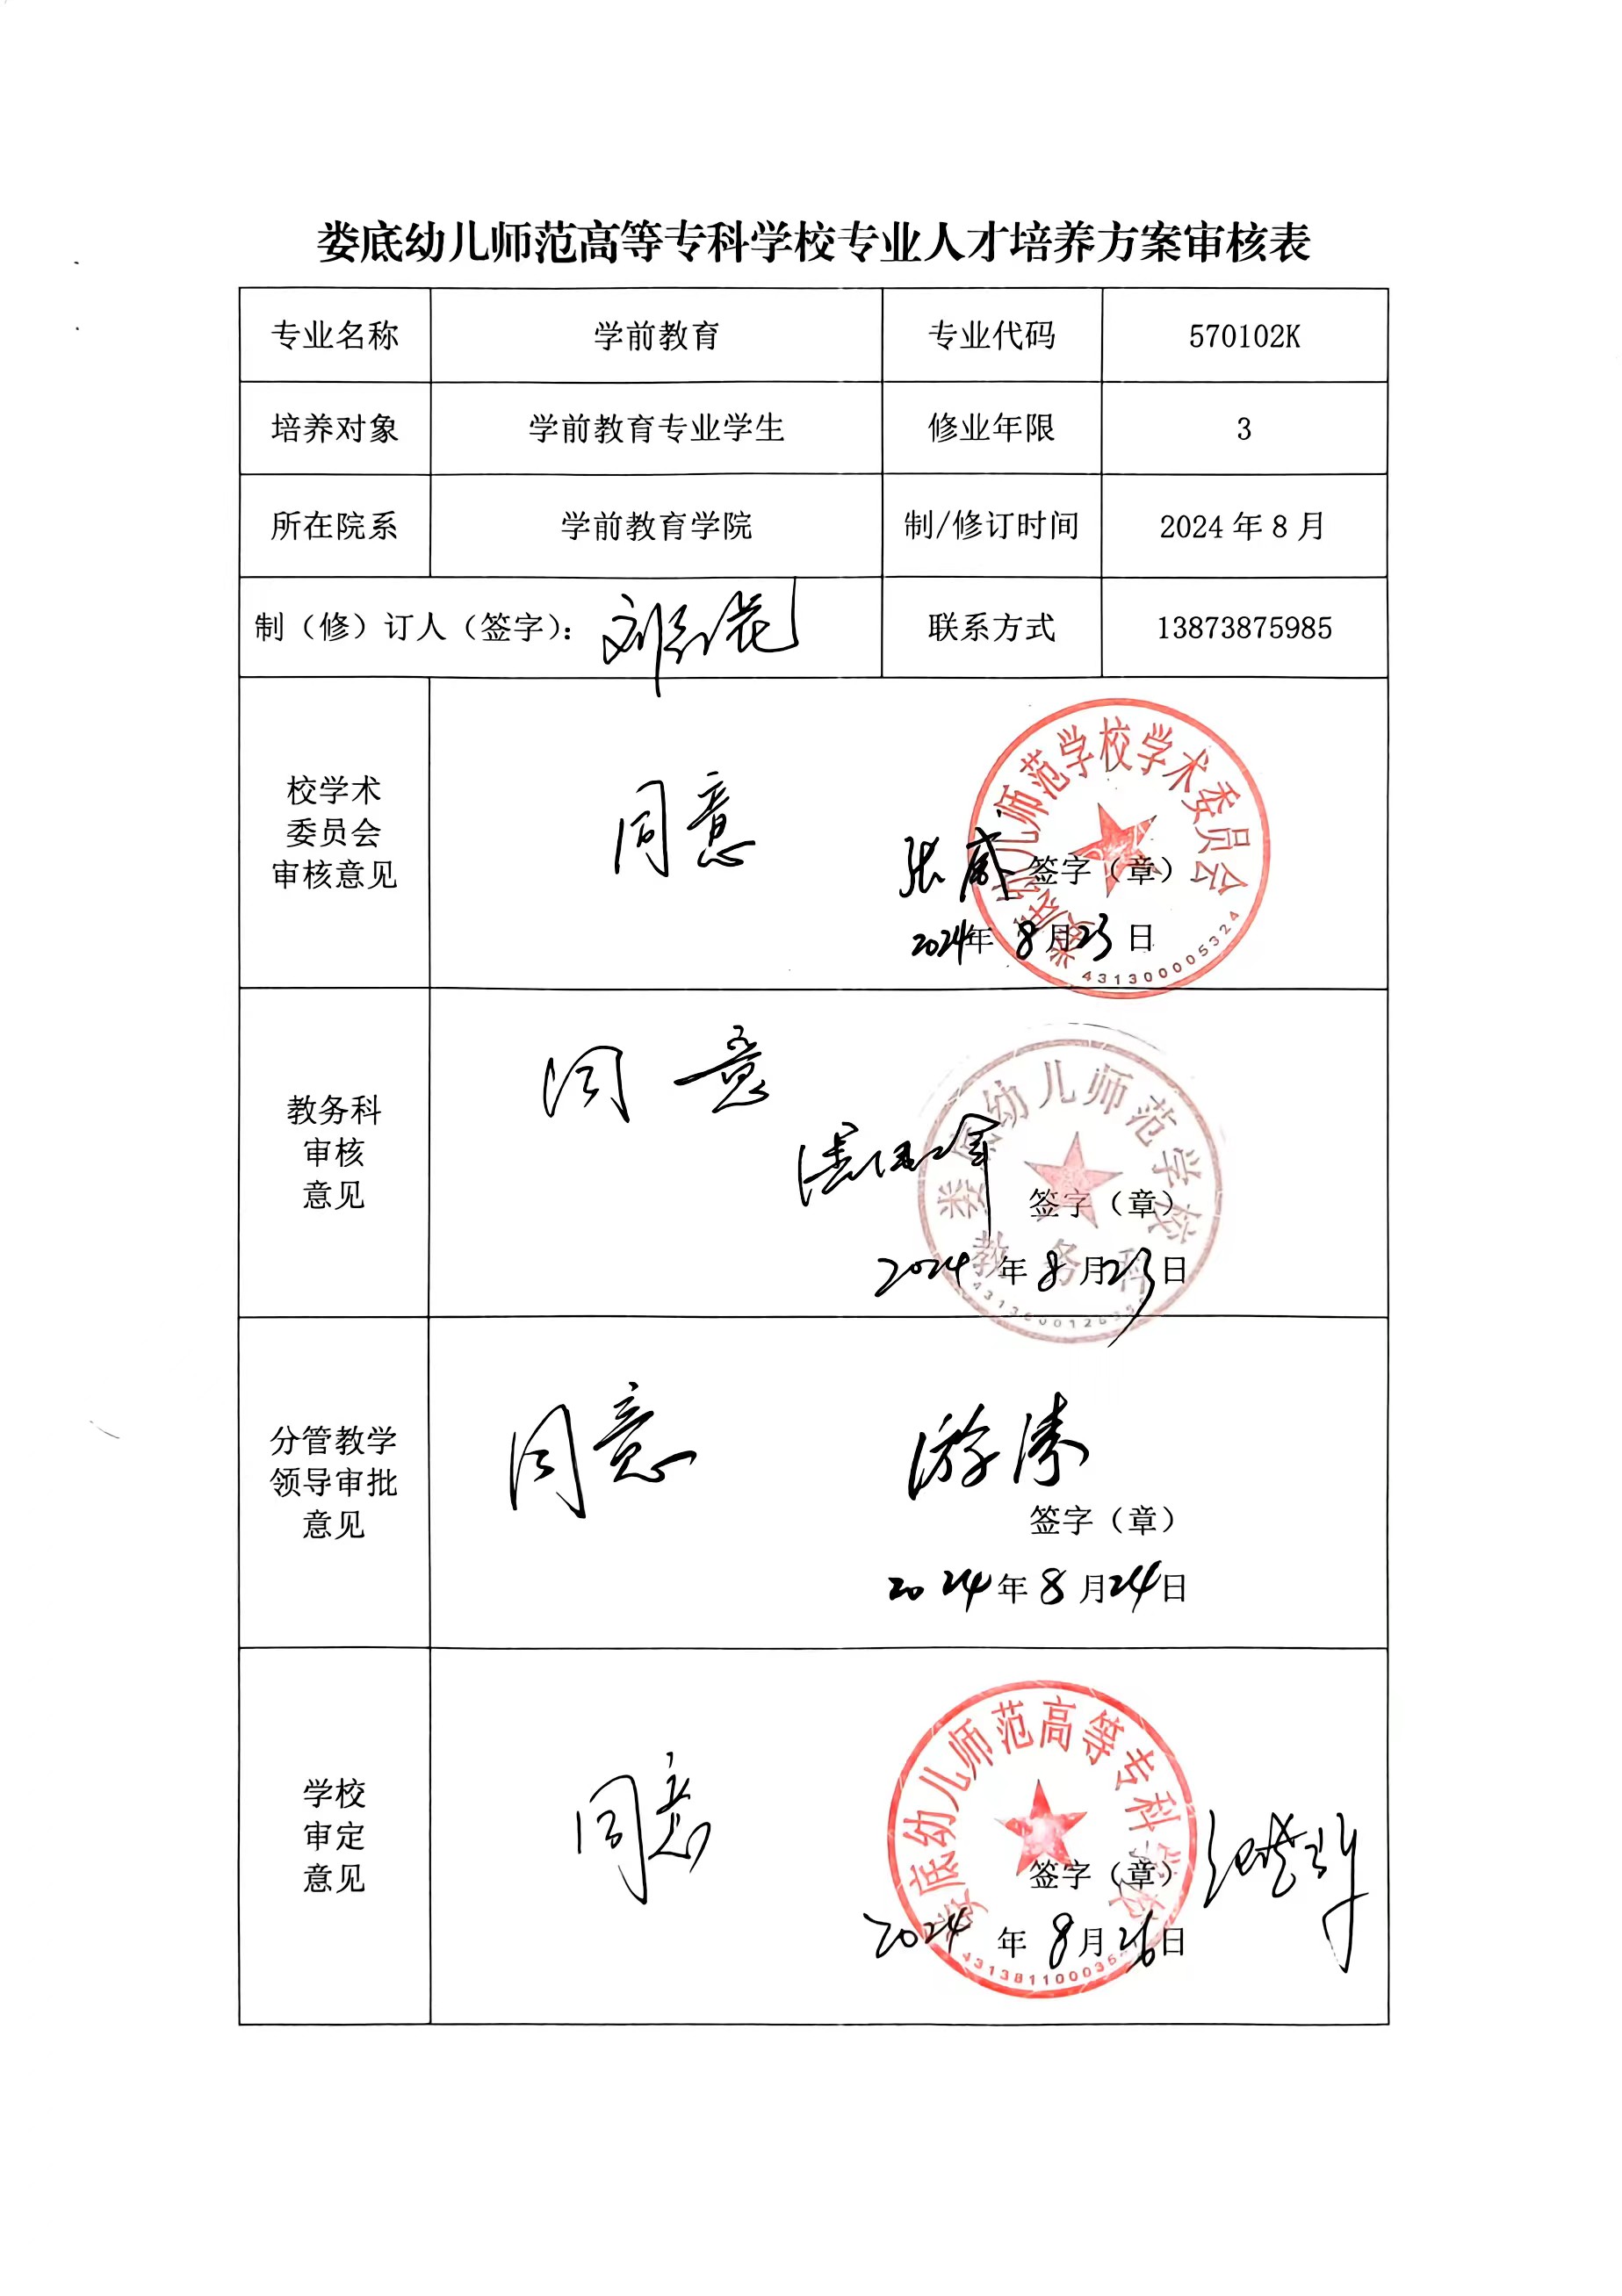 娄底幼儿师范高等专科学校专业人才培养方案审核表
专业名称 学前教育 专业代码 570102K
培养对象 学前教育专业学生 修业年限 3
所在院系 学前教育学院 制/修订时间 2024年8月
制（修）订人（签字）： 联系方式 13873875985
校学术
委员会
审核意见
同意
娄底幼儿师范学校学术委员会
张盛 签字（章）
2024年8月23日
4313000005324
教务科
审核
意见
同意
娄底幼儿师范学校
签字（章）
教务科
2024年8月23日
分管教学
领导审批
意见
同意
游涛
签字（章）
2024年8月24日
学校
审定
意见
同意
娄底幼儿师范高等专科学校
签字（章）
2024年8月26日